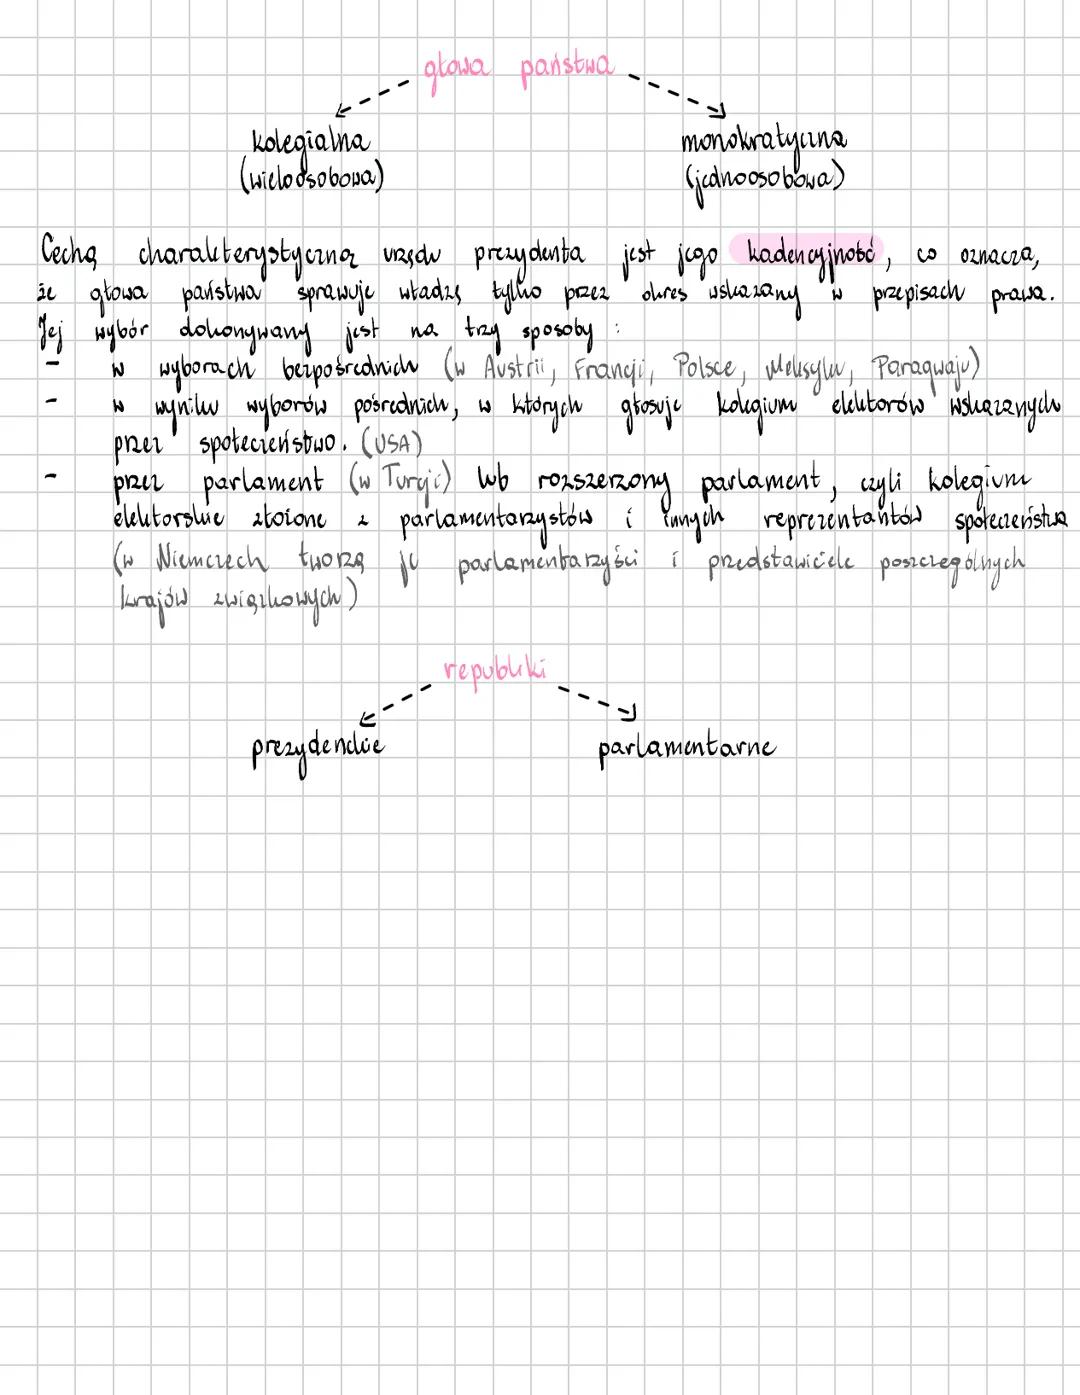 głowa państwa
kolegialna monokratyczna
(wieloosobowa) (jednoosobowa)
Cechą charakterystyczną urzędu prezydenta jest jego kadencyjność, co oznacza,
że głowa państwa sprawuje władzę tylko przez okres wskazany w przepisach prawa.
Jej wybór dokonywany jest na trzy sposoby:
- w wyborach bezpośrednich (w Austrii, Francji, Polsce, Meksyku, Paragwaju)
- w wyniku wyborów pośrednich, w których głosuje kolegium elektorów wskazanych
przez społeczeństwo. (USA)
- przez parlament (w Turcji) lub rozszerzony parlament, czyli kolegium
elektorskie złożone z parlamentarzystów i innych reprezentantów społeczeństwa
(w Niemczech tworzą je parlamentarzyści i przedstawiciele poszczególnych
krajów związkowych)
republiki
prezydenckie parlamentarne